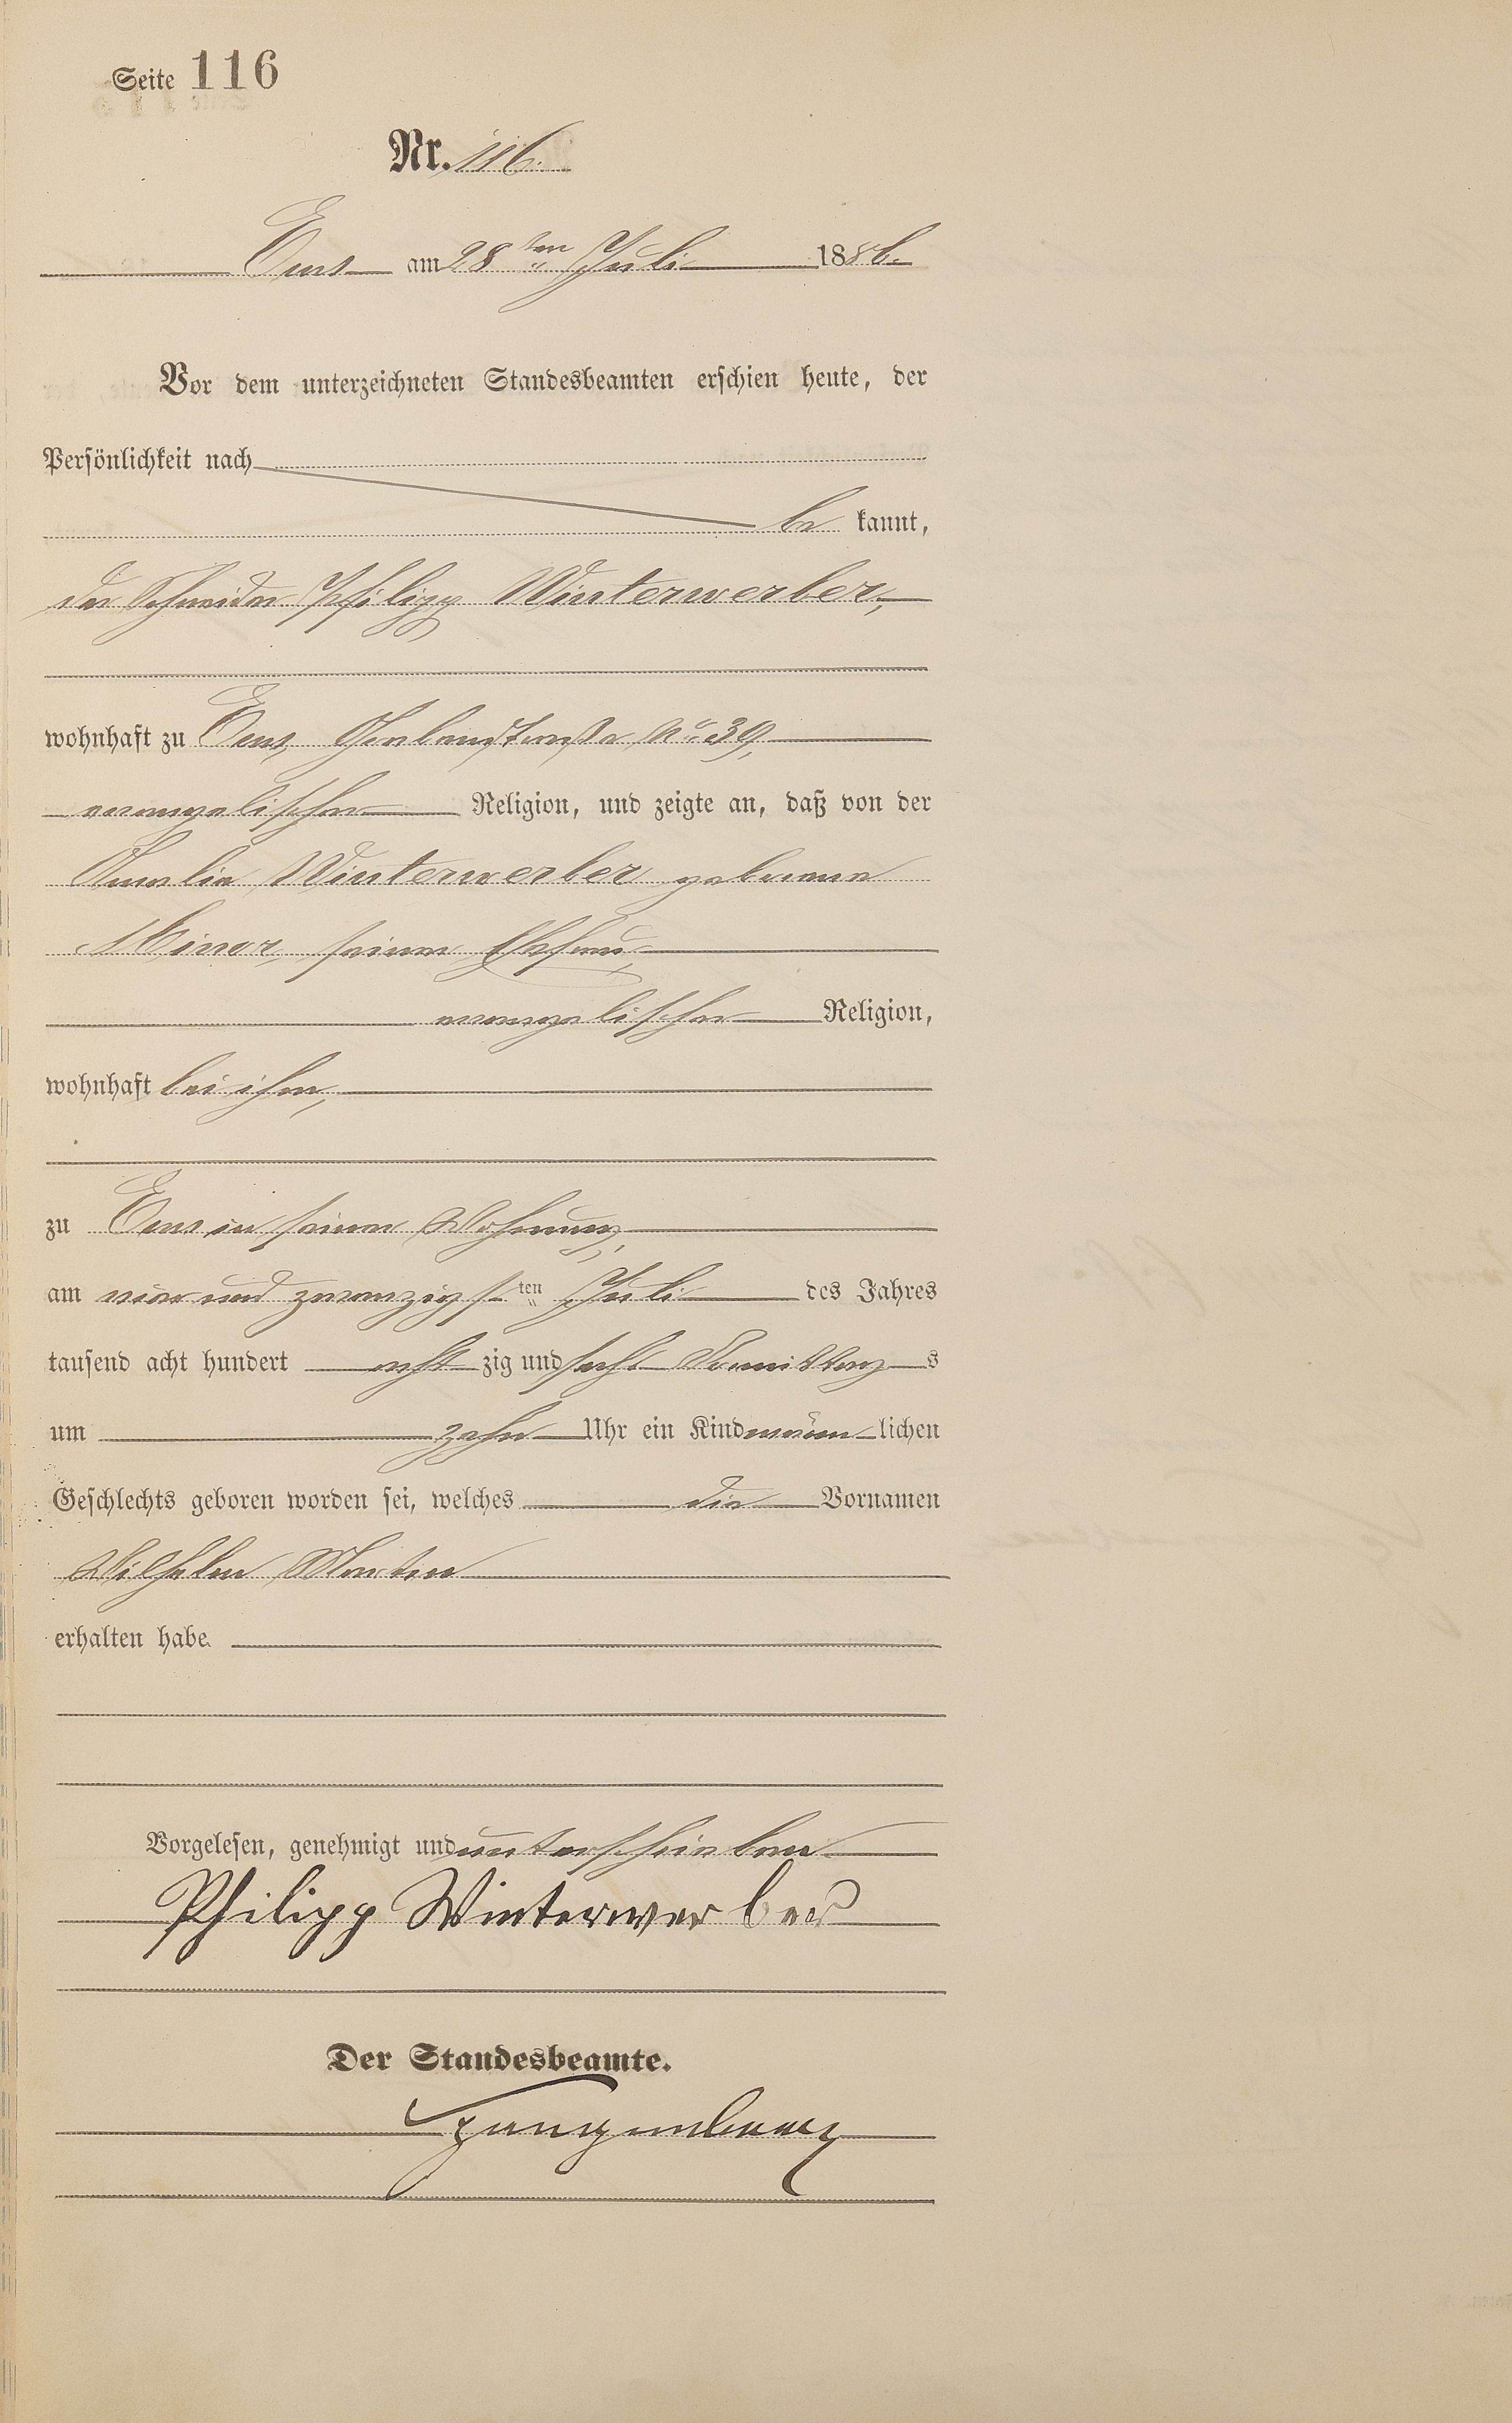 Seite 116
Nr. 116.
Ems am 28 ten Juli 1886.
Vor dem unterzeichneten Standesbeamten erschien heute, der
Persönlichkeit nach
be kannt,
der Schneider Philipp Winterwerber,
wohnhaft zu Ems, No 39,
evangelischer Religion, und zeigte an, daß von der
Amalie Winterwerber geborene
Minor, seiner Ehefrau,
evangelischer Religion,
wohnhaft bei ihm,
zu Ems in seiner Wohnung,
am vier und zwanzigs ten Juli des Jahres
tausend acht hundert acht zig und sechs Vormittag s
um zehn Uhr ein Kind männ lichen
Geschlechts geboren worden sei, welches die Vornamen
Wilhelm Martin
erhalten habe
Vorgelesen, genehmigt und unterschrieben
Philipp Winterwerber
Der Standesbeamte.